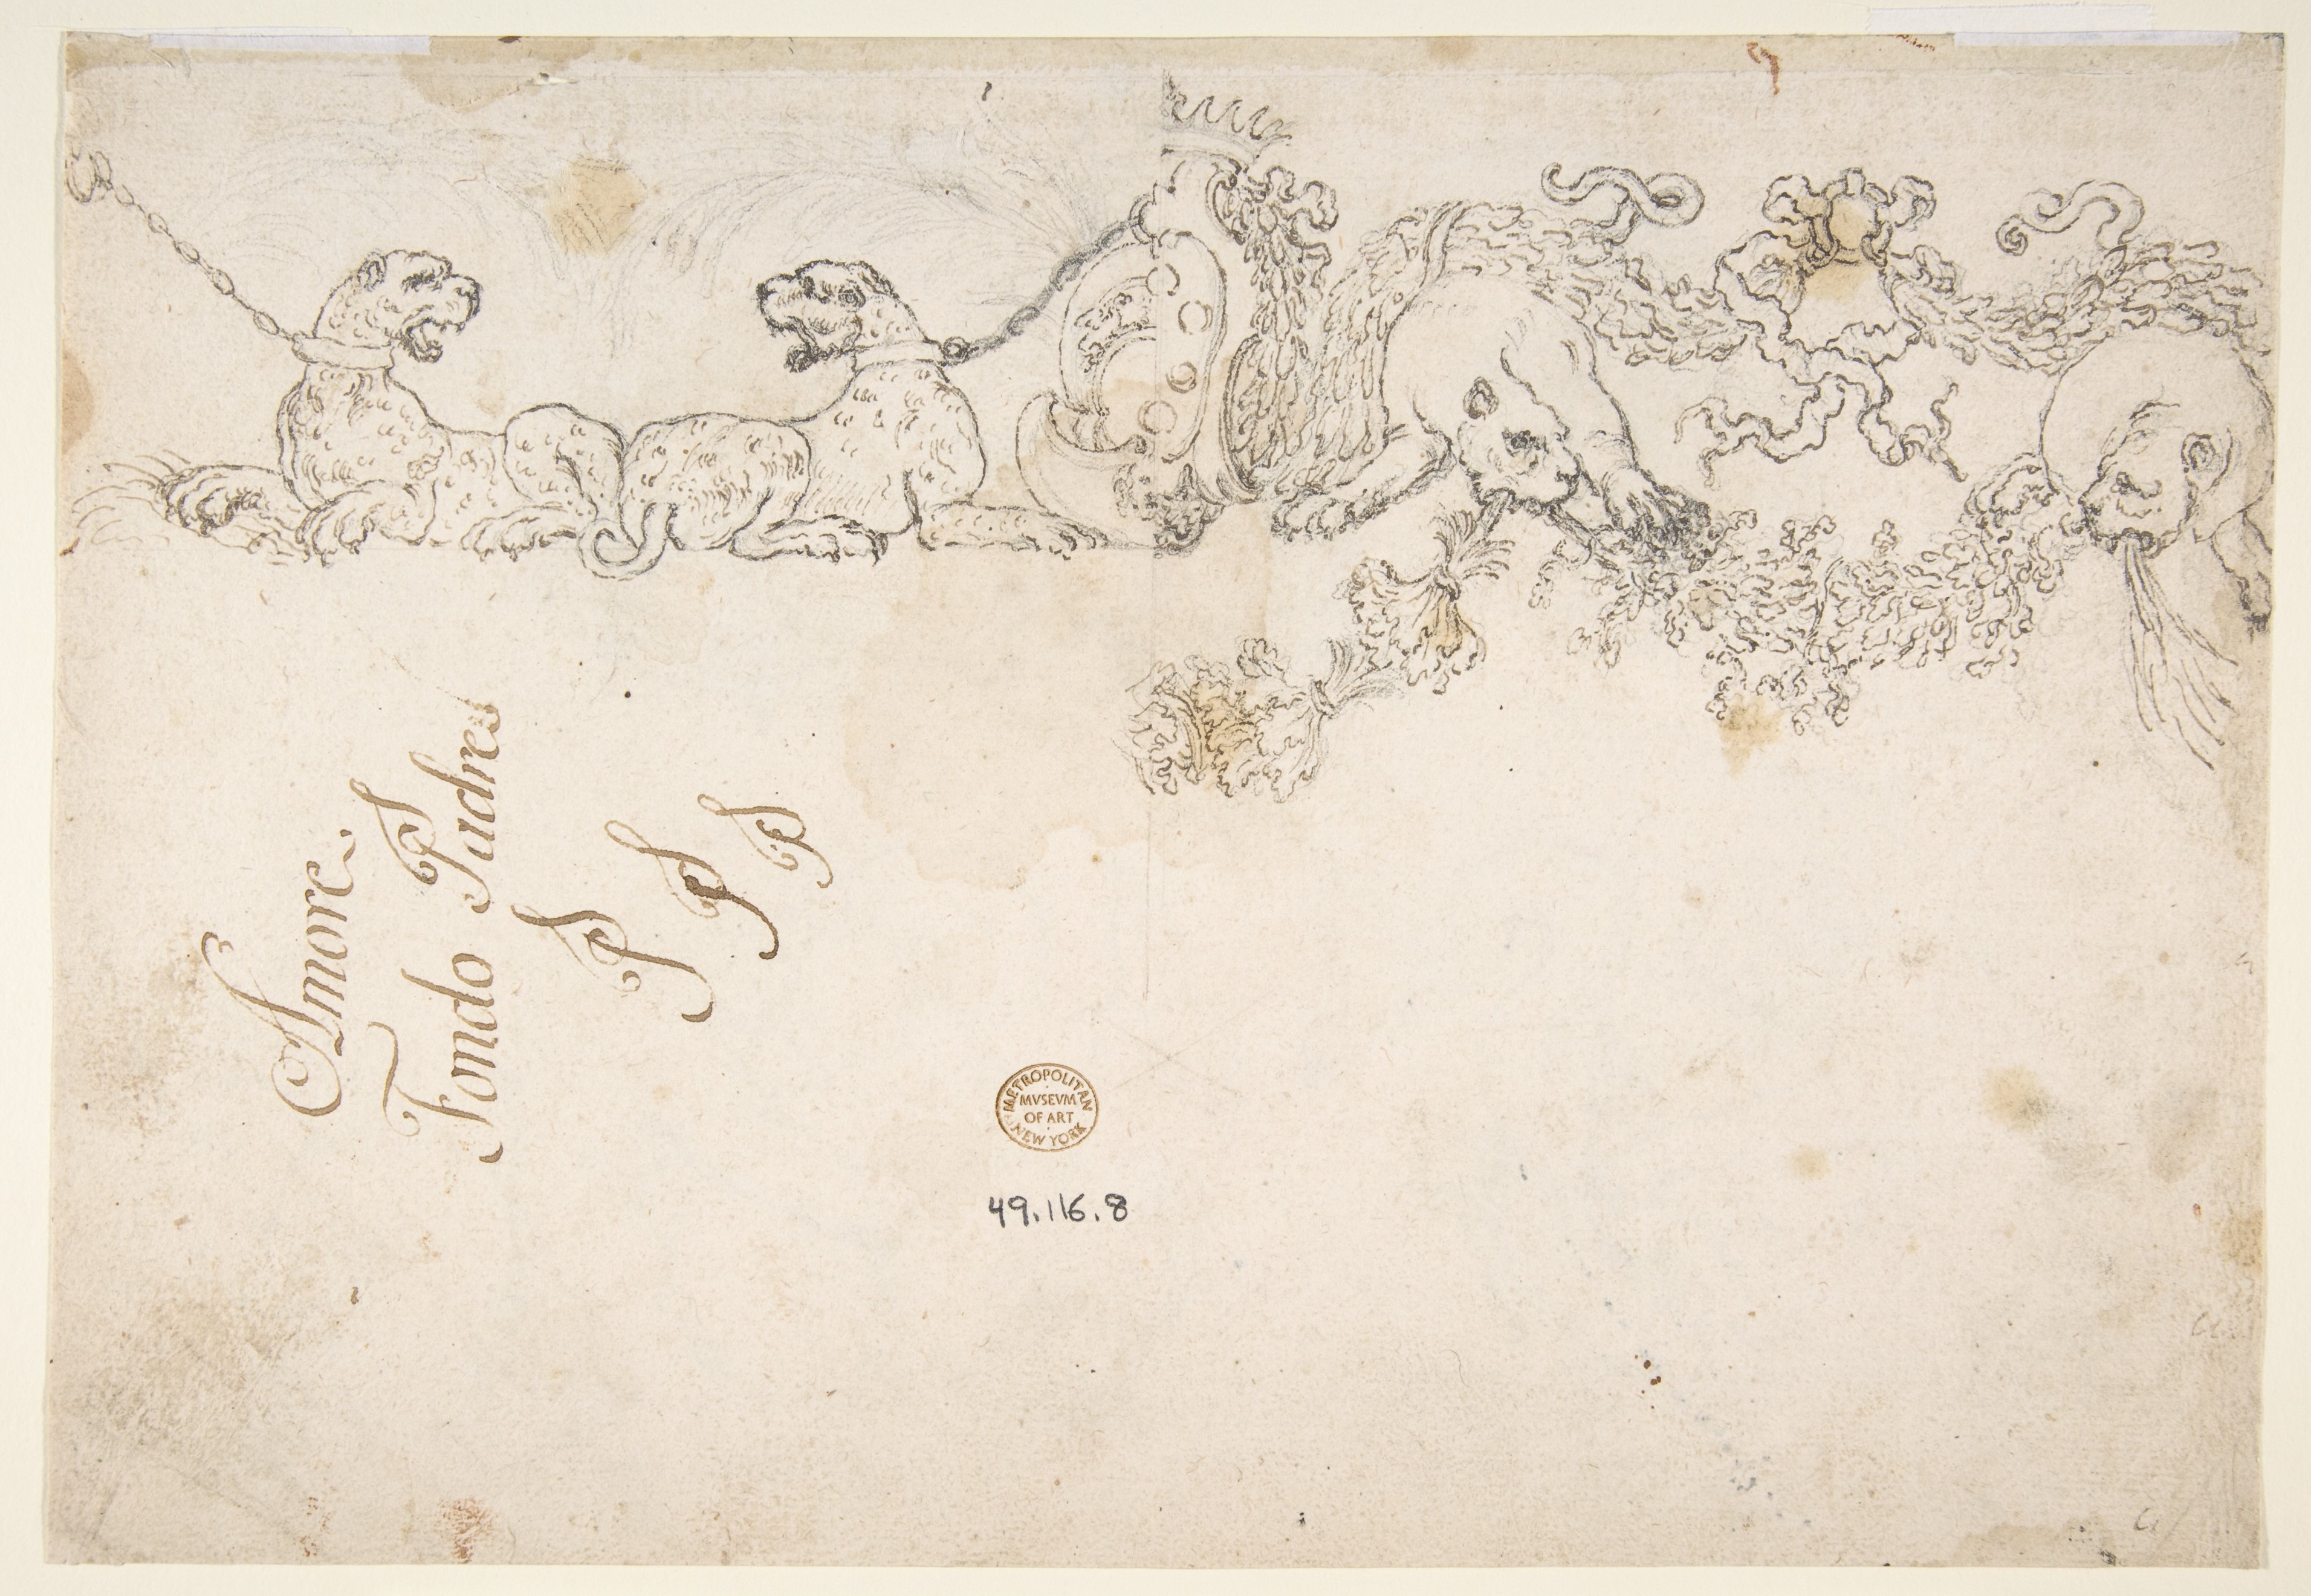 Amore.
Fondo Padres
P
P
P
METROPOLITAN
MVSEVM
OF ART
NEW YORK
49.116.8